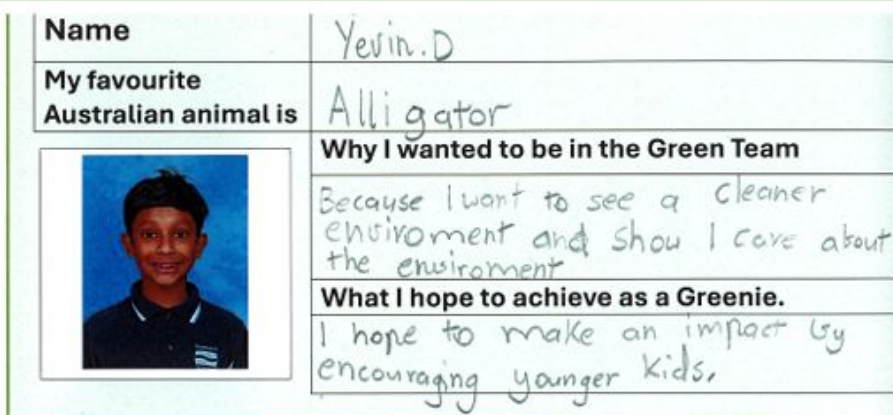 Name
Yevin.D
My favourite
Australian animal is
Alligator
Why I wanted to be in the Green Team
Because I want to see a cleaner
enviroment and show I care about
the enviroment
What I hope to achieve as a Greenie.
I hope to make an impact by
encouraging younger kids.